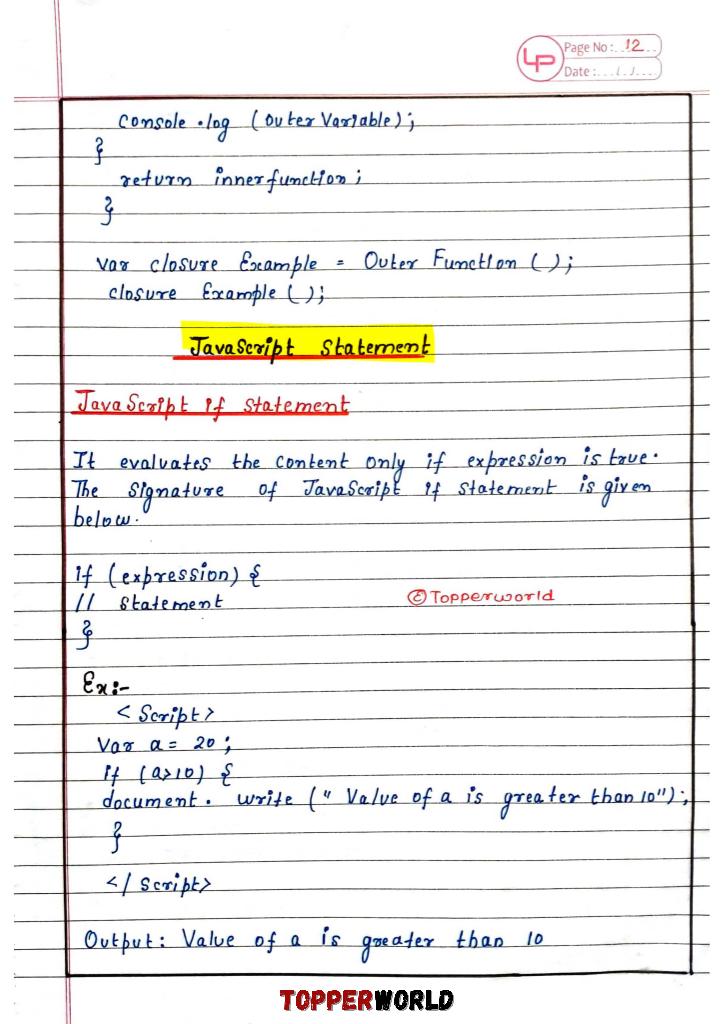 LP
Page No: 12
Date:
Console .log (OuterVariable);
}
return innerfunction;
}
Var closure Example = Outer Function ();
closure Example ();
JavaScript Statement
JavaScript if statement
It evaluates the content only if expression is true.
The Signature of JavaScript if statement is given
below.
if (expression) {
// Statement
© Topperworld
}
Ex:-
< Script>
Var a = 20;
if (a>10) {
document. write (" Value of a is greater than 10");
}
</ Script>
Output: Value of a is greater than 10
TOPPERWORLD